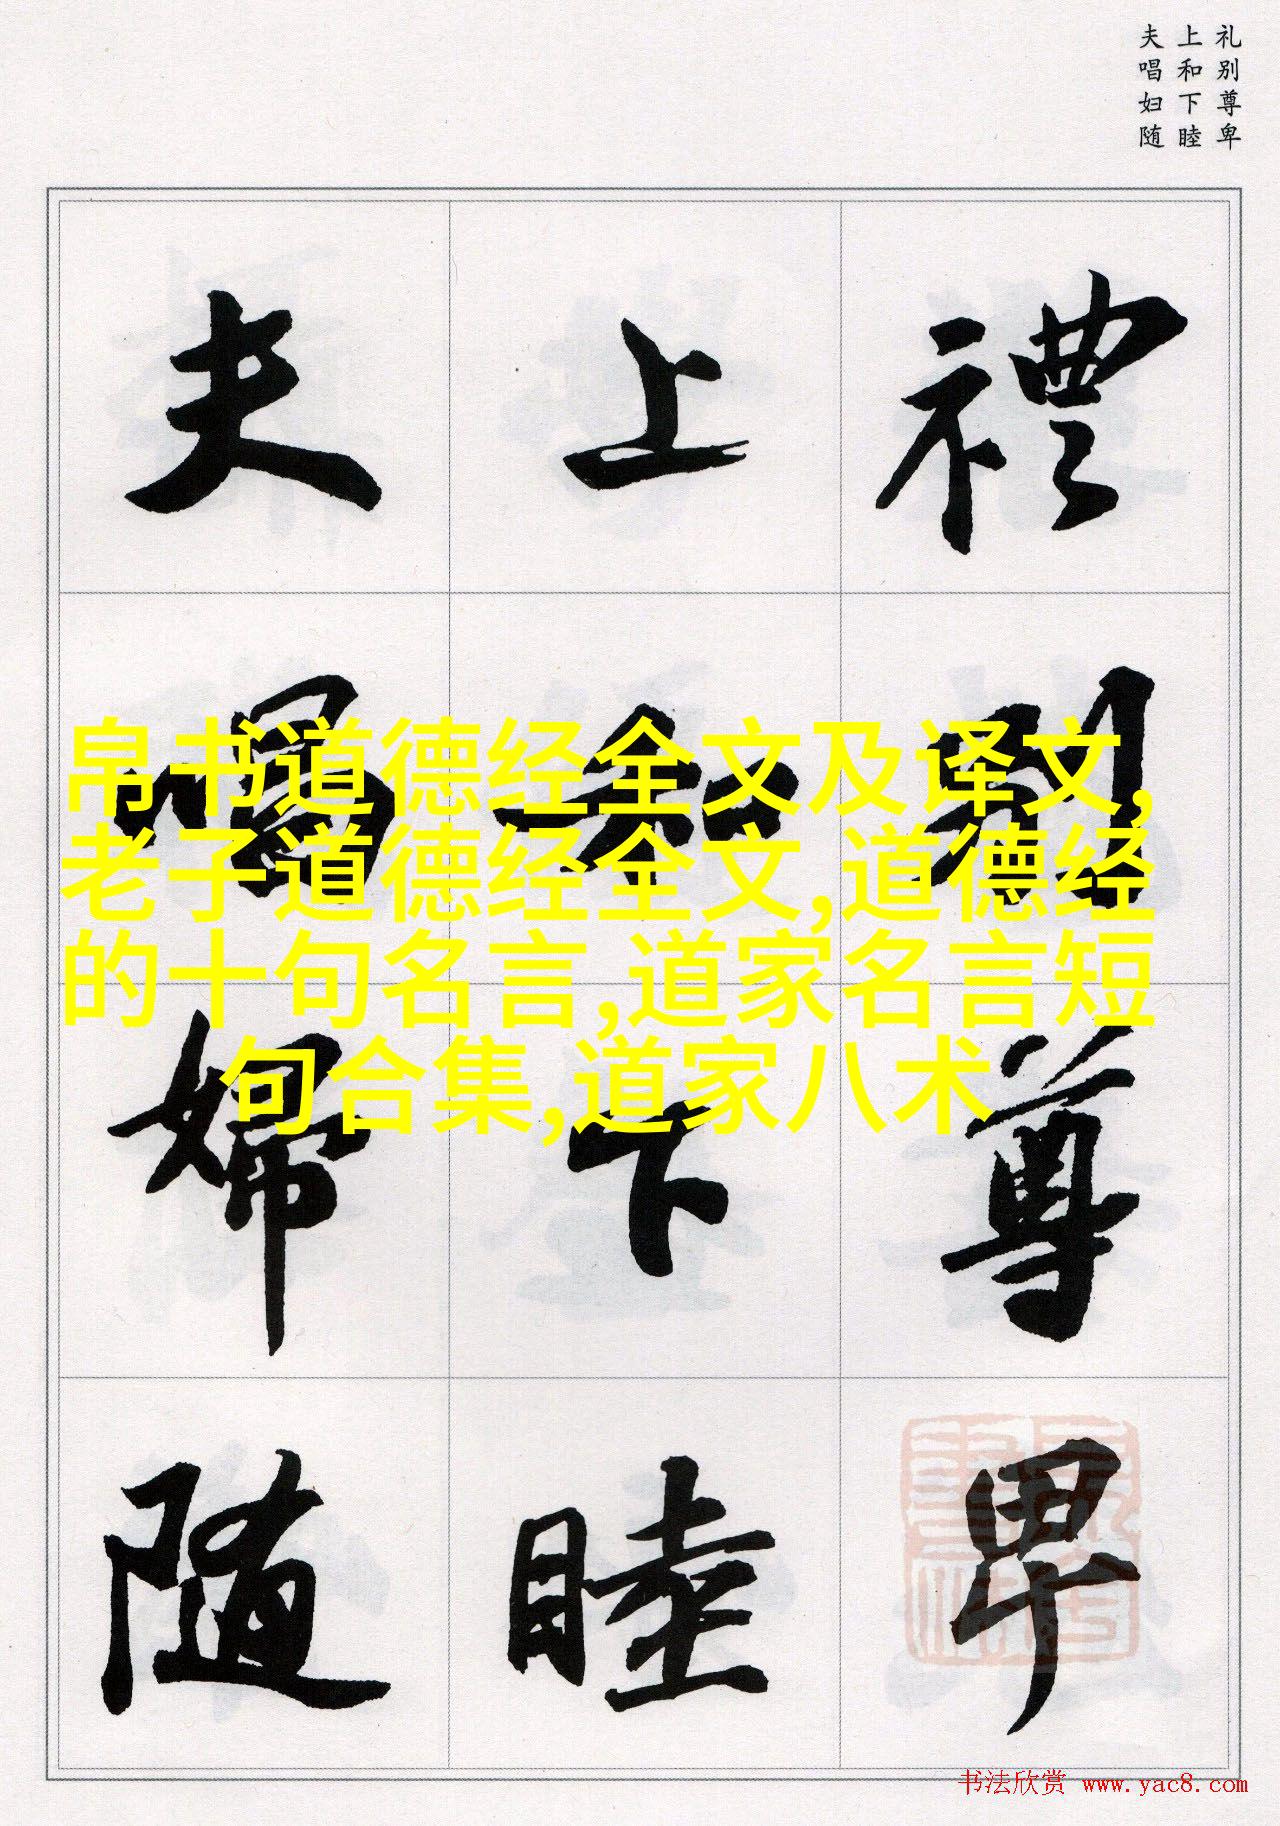 礼别尊卑
上和下睦
夫唱妇随
禮別尊卑
上和下睦
夫唱婦随
帛书道德经全文及译文,
老子道德经全文,道德经
的十句名言,道家名言短
句合集,道家八术
书法欣赏 www.yac8.com